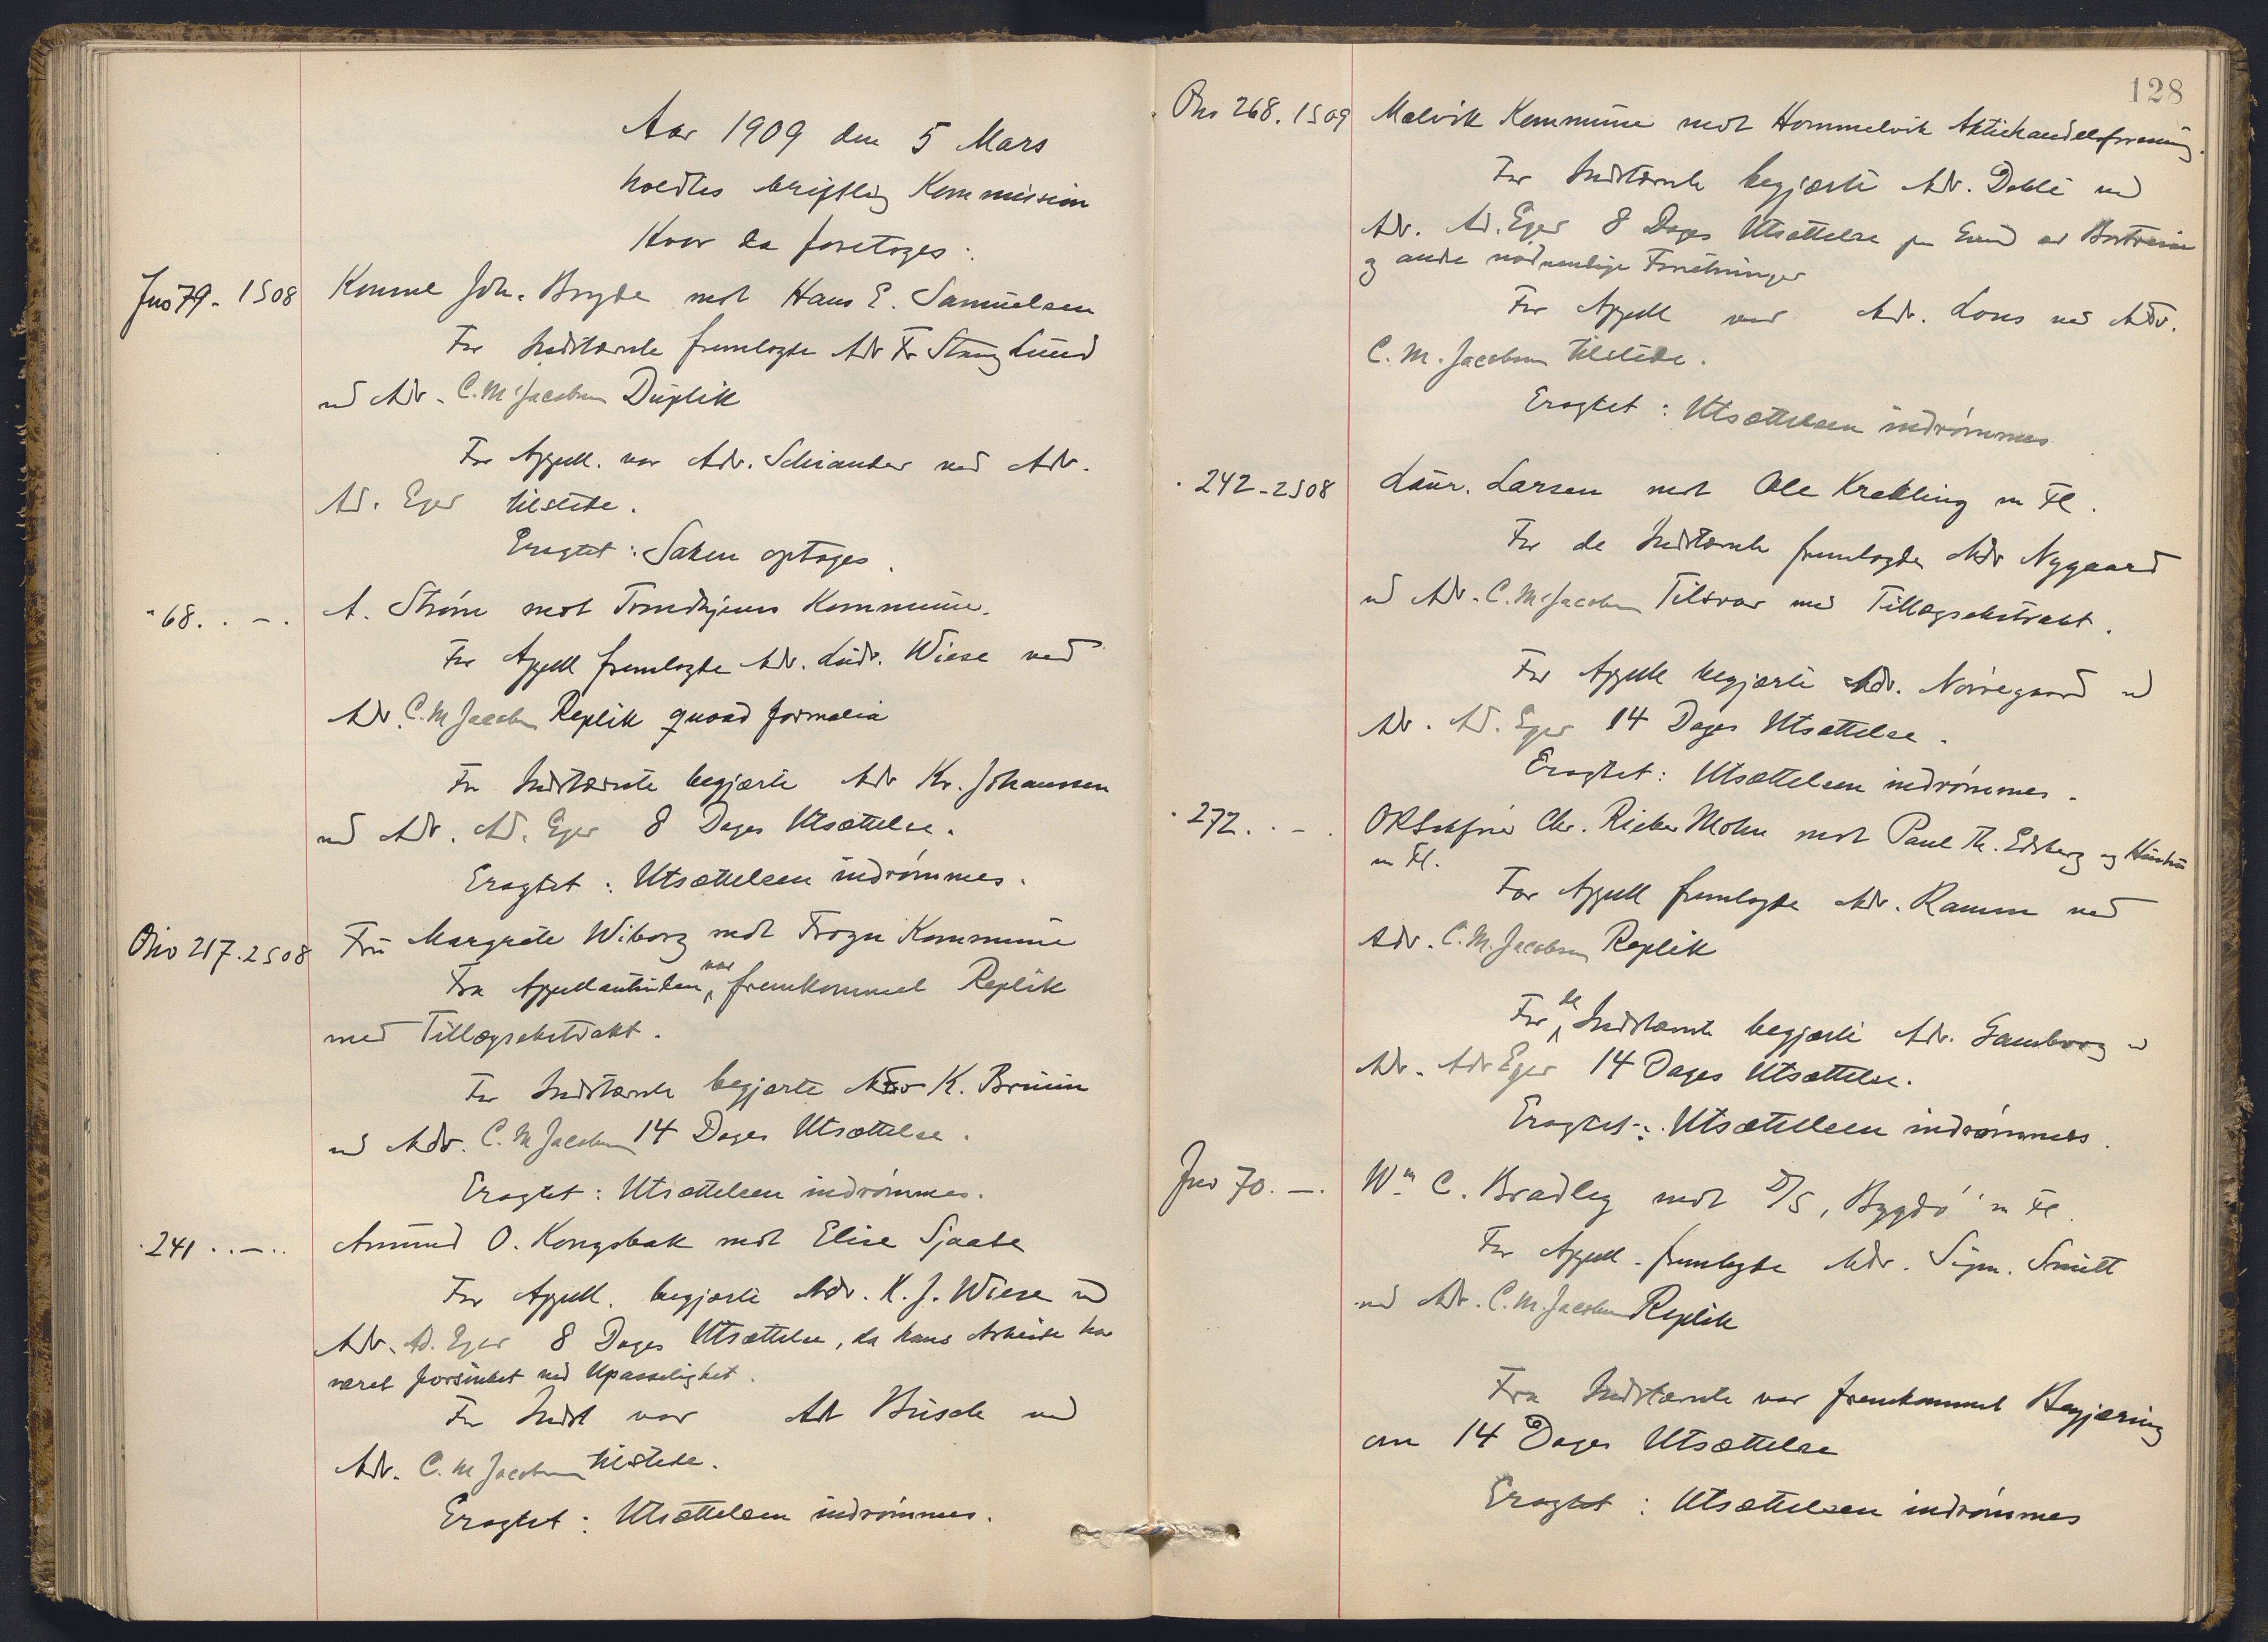 Aar 1909 den 5 Mars
holdtes skriftlig Kommission
hvor da foretoges:
Jno 79 - 1S08 Konsul Joh. Bryde mot Hans E. Samuelsen
For Indstævnte fremlagde Adv Fr Stang Lund
ved Adv. C. M. Jacobsen Duplik
For Appell. var Adv. Schiander ved Adv.
Ad. Eger tilstede.
Eragtet: Saken optages.
" 68. . - . A. Strøm mot Trondhjems Kommune.
For Appell fremlagde Adv. Ludv. Wiese ved
Adv. C. M Jacobsen Replik quoad formalia
For Indstævnte begjærte Adv Kr. Johanssen
ved Adv. Ad. Eger 8 Dages Utsættelse.
Eragtet: Utsættelsen indrømmes.
Ono 217. 2S08 Fru Margrete Wiborg mot Frogn Kommune
Fra Appellantinden var fremkommet Replik
med Tillægsekstrakt.
For Indstævnte begjærte Adv K. Bruun
ved Adv. C. M Jacobsen 14 Dages Utsættelse.
Eragtet: Utsættelsen indrømmes.
" 241 . . - . . Amund O. Kongsbak mot Elise Sjaabe
For Appell. begjærte Adv. K. J. Wiese ved
Adv. Ad. Eger 8 Dages Utsættelse, da hans Arbeide har
været forsinket ved Upasselighet.
For Indst var Adv Busch ved
Adv. C. M Jacobsen tilstede.
Eragtet: Utsættelsen indrømmes.
128
Ono 268. 1S09 Malvik Kommune mot Hommelvik Aktiehandelsforening.
For Indstævnte begjærte Adv. Dahle ved
Adv. Ad. Eger 8 Dages Utsættelse paa Grund av Bortreise
og andre nødvendige Forretninger
For Appell var Adv. Lous ved Adv.
C. M. Jacobsen tilstede.
Eragtet: Utsættelsen indrømmes
" 242 - 2S08 Laur. Larsen mot Ole Krekling m Fl.
For de Indstævnte fremlagde Adv Nygaard
ved Adv. C. M. Jacobsen Tilsvar med Tillægsekstrakt.
For Appell begjærte Adv. Nørregaard ved
Adv. Ad. Eger 14 Dages Utsættelse.
Eragtet: Utsættelsen indrømmes.
" 272. . - . ORSakfører Chr. Rieber Mohn mot Paul Th. Edsberg og Hustru
m Fl.
For Appell fremlagde Adv. Ramm ved
Adv. C. M. Jacobsen Replik
For de Indstævnte begjærte Adv. Gamborg ved
Adv. Adv Eger 14 Dages Utsættelse.
Eragtet: Utsættelsen indrømmes.
Jno 70. - . Wm C. Bradley mot D/S, Bygdø" m Fl.
For Appell. fremlagde Adv. Sigm. Smitt
ved Adv. C. M. Jacobsen Replik
Fra Indstævnte var fremkommet Begjæring
om 14 Dages Utsættelse
Eragtet: Utsættelsen indrømmes